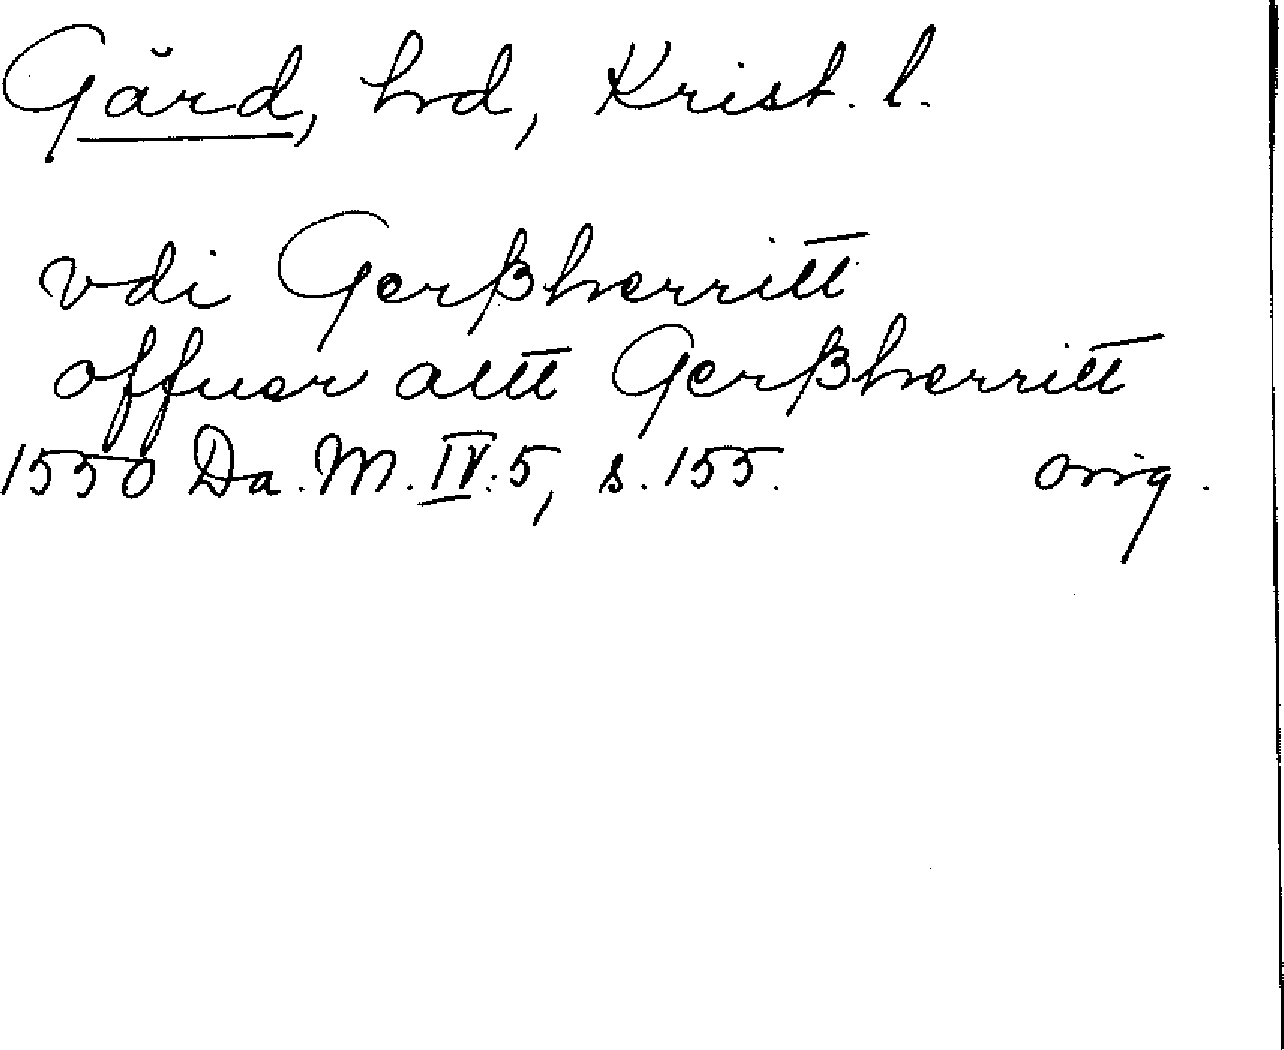 Gärd, hrd, Krist. l.
vdi Gerßherritt
offuer altt Gerßherritt
1550 Da. M. IV:5, s. 155. orig.